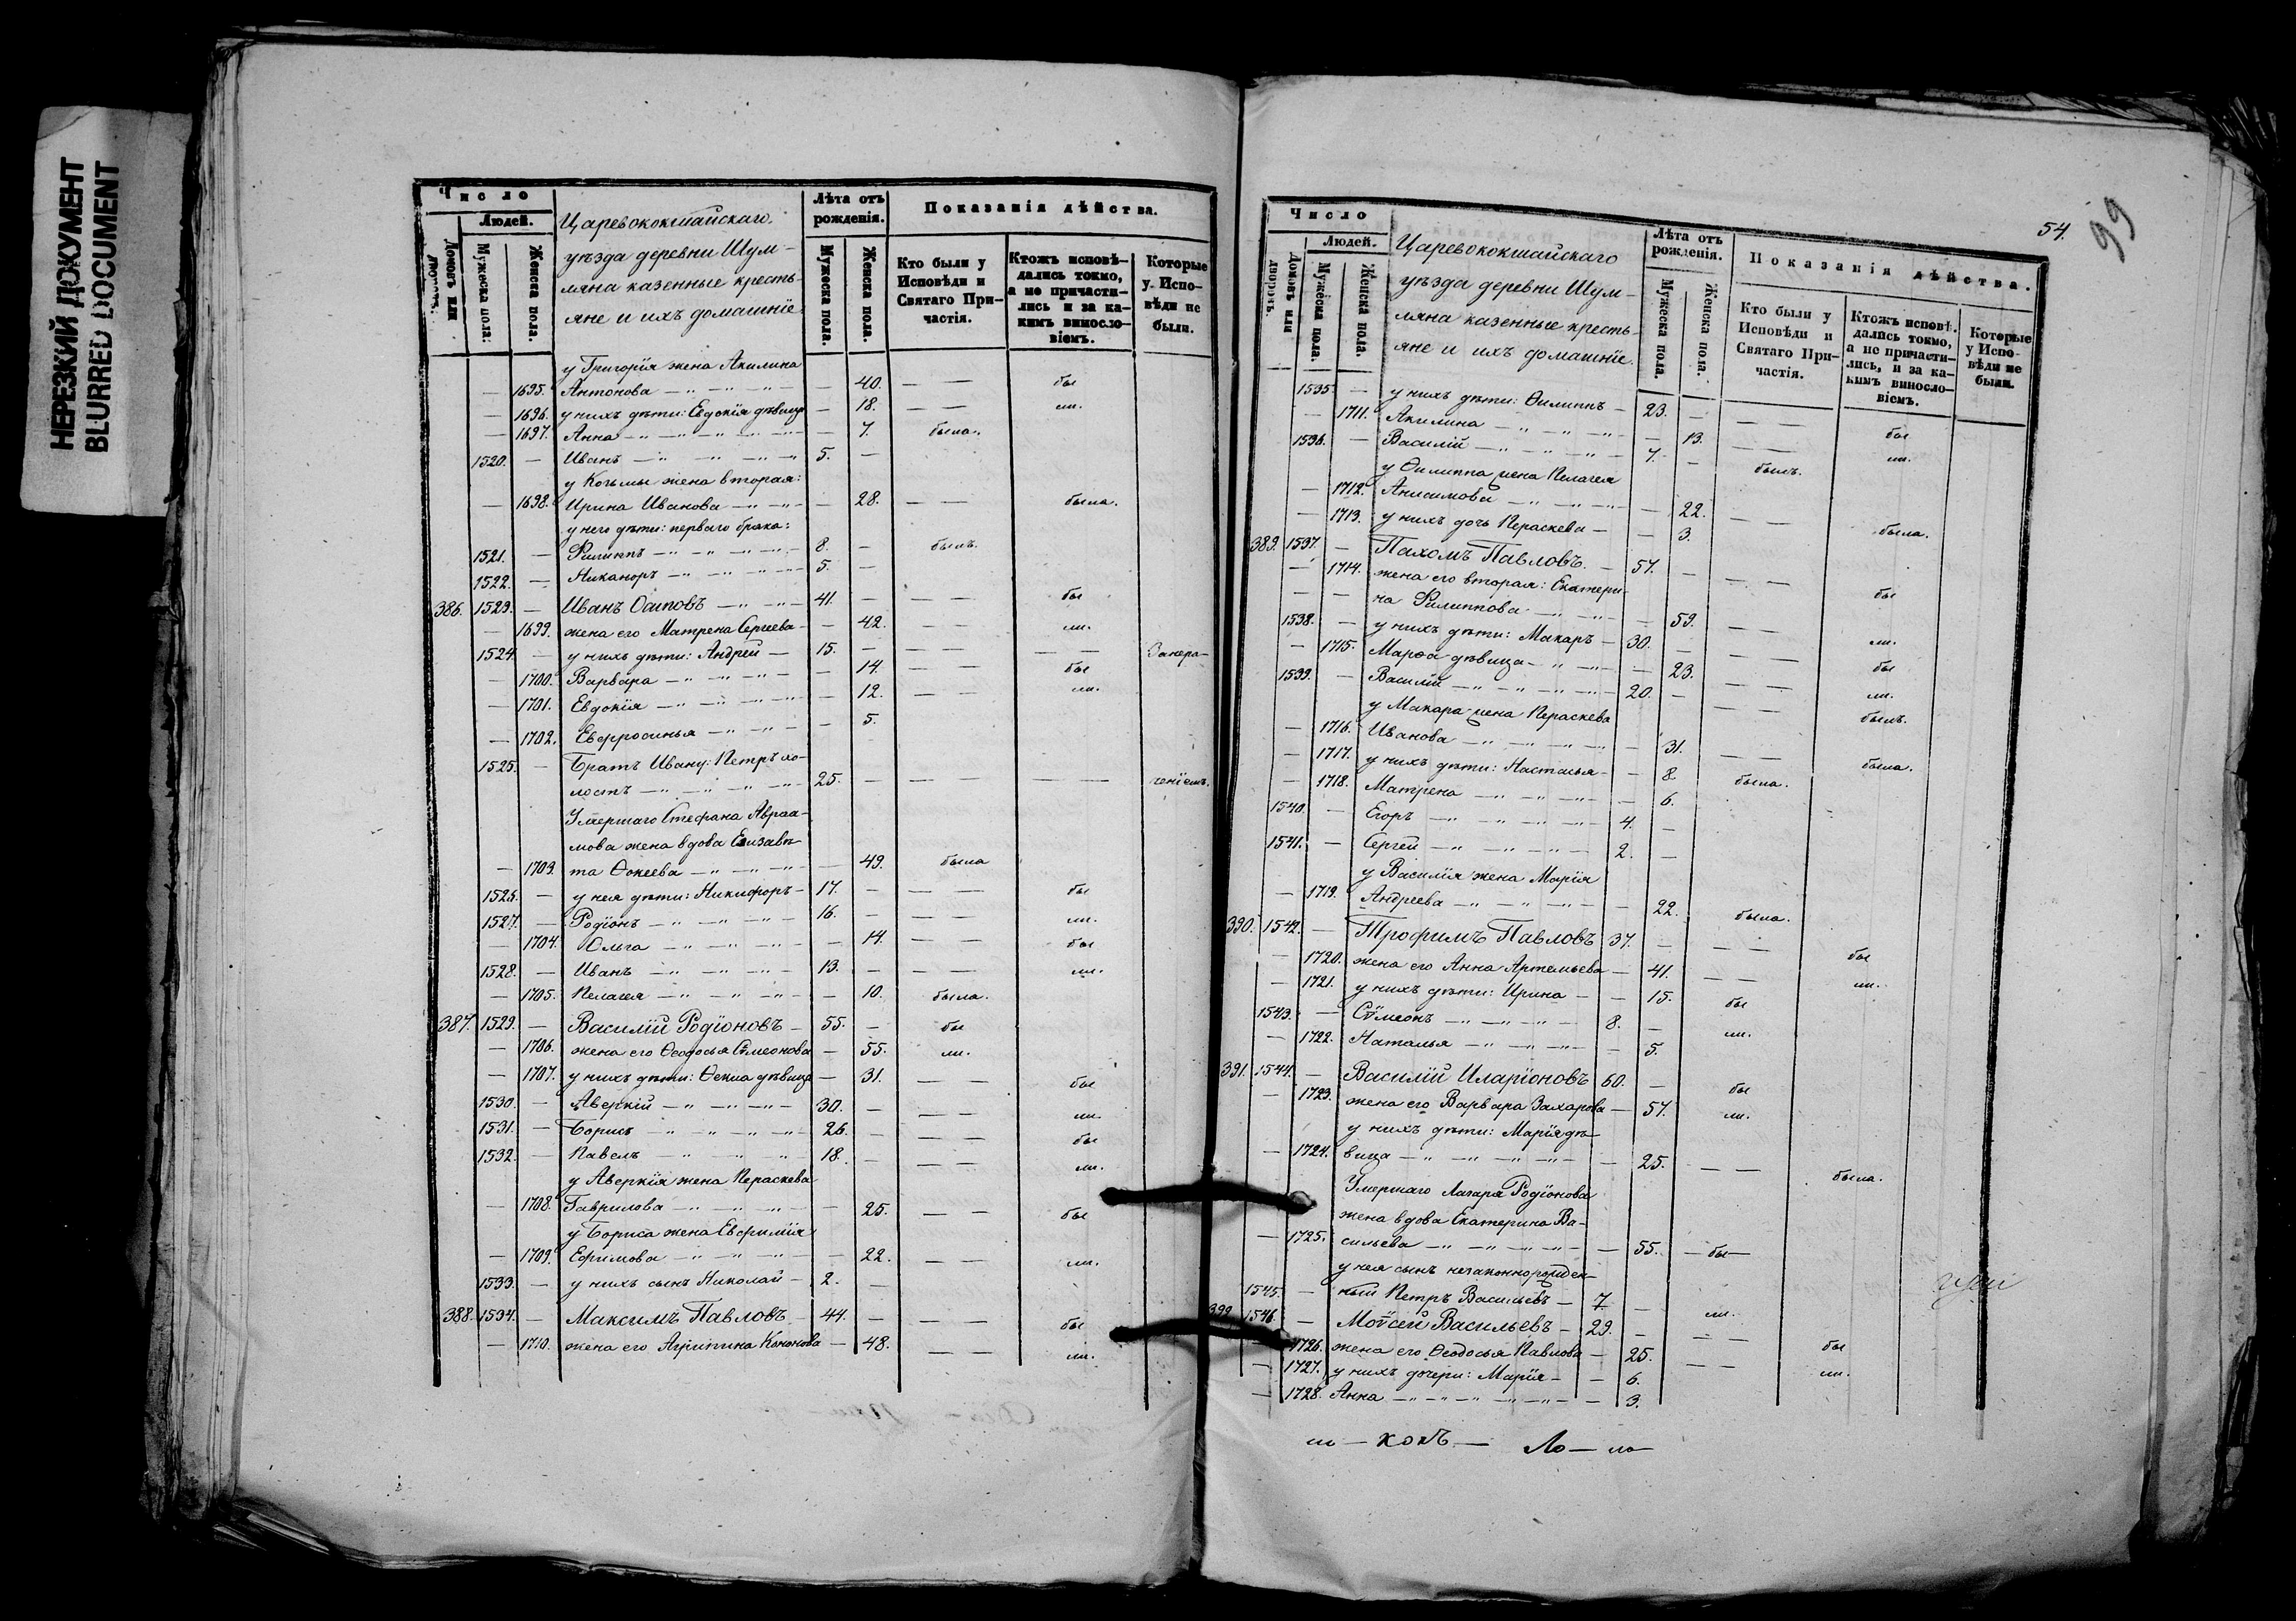 НЕРЕЗКИЙ ДОКУМЕНТ
BLURRED DOCUMENT
Число
Людей.
Домовъ или дворовъ.
Мужеска пола.
Женска пола.
Царевококшайскаго
уѣзда деревни Шум-
ляна казенные кресть-
яне и ихъ домашніе
Лѣта отъ рожденія.
Мужеска пола.
Женска пола.
Показанія дѣйства.
Кто были у Исповѣди и Святаго Причастія.
Ктожъ исповѣ-
дались токмо,
а не причасти-
лись и за ка-
кимъ винословіемъ.
Которые у Исповѣди не были.
у Григорія жена Акилина
— 1695. Антонова — 40. — — бы
— 1696. у нихъ дѣти: Евдокія дѣвица — 18. — — ли.
— 1697. Анна — 7. была.
1520. — Иванъ 5. —
у Козьмы жена вторая:
— 1698. Ирина Иванова — 28. — — была.
у него дѣти: перваго брака:
1521. — Филиппъ 8. — былъ.
1522. — Никаноръ 5. —
386. 1523. — Иванъ Осиповъ 41. — — — бы
— 1699. жена его Матрена Сергеева — 42. — — ли.
1524. — у нихъ дѣти: Андрей 15. — — — — — Закоро-
— 1700. Варвара — 14. — — бы
— 1701. Евдокія — 12. — — ли.
— 1702. Евфросинья — 5.
1525. — Братъ Ивану: Петръ хо-
лостъ 25. — — — — — ченіемъ.
Умершаго Стефана Авраа-
мова жена вдова Елизаве-
— 1703. та Ѳокеева — 49. была
1526. — у нея дѣти: Никифоръ 17. — — — бы
1527. — Родіонъ 16. — — — ли.
— 1704. Ольга — 14. — — бы
1528. — Иванъ 13. — — — ли.
— 1705. Пелагея — 10. была.
387. 1529. — Василій Родіоновъ 55. — бы
— 1706. жена его Ѳеодосья Сѵмеонова — 55. ли.
— 1707. у нихъ дѣти: Ѳекла дѣвица — 31. — — бы
1530. — Аверкій 30. — — — ли.
1531. — Борисъ 26. — — — бы
1532. — Павелъ 18. — — — ли.
у Аверкія жена Параскева
— 1708. Гаврилова — 25. — — бы
у Бориса жена Евфимія
— 1709. Ефимова — 22. — — ли.
1533. — у нихъ сынъ Николай 2. —
388. 1534. — Максимъ Павловъ 44. — — — бы
— 1710. жена его Агрипина Кононова — 48. — — ли.
54.
99
Число
Людей.
Домовъ или дворовъ.
Мужеска пола.
Женска пола.
Царевококшайскаго
уѣзда деревни Шум-
ляна казенные кресть-
яне и ихъ домашніе.
Лѣта отъ рожденія.
Мужеска пола.
Женска пола.
Показанія дѣйства.
Кто были у Исповѣди и Святаго Причастія.
Ктожъ исповѣ-
дались токмо,
а не причасти-
лись, и за ка-
кимъ винословіемъ.
Которые у Исповѣди не были.
1535. — у нихъ дѣти: Ѳилиппъ 23. — — — бы
— 1711. Акилина — 13. — — ли.
1536. — Василій 7. — былъ.
у Ѳилиппа жена Пелагея
— 1712. Анисимова — 22. — — была.
— 1713. у нихъ дочь Параскева — 3.
389. 1537. — Пахомъ Павловъ. 57. — — — бы
— 1714. жена его вторая: Екатери-
— — на Филиппова — 59. — — ли.
1538. — у нихъ дѣти: Макаръ 30. — — — бы
— 1715. Марѳа дѣвица — 23. — — ли.
1539. — Василій 20. — — — былъ.
у Макара жена Параскева
— 1716. Иванова — 31. — — была.
— 1717. у нихъ дѣти: Настасья — 8. была.
— 1718. Матрена — 6.
1540. — Егоръ 4. —
1541. — Сергей 2. —
у Василія жена Марія
— 1719. Андреева — 22. была.
390. 1542. — Трофимъ Павловъ 37. — — — бы
— 1720. жена его Анна Артемьева — 41. — — ли.
— 1721. у нихъ дѣти: Ирина — 15. бы
1543. — Сѵмеонъ 8. — ли.
— 1722. Наталья — 5.
391. 1544. — Василій Иларіоновъ 60. — бы
— 1723. жена его Варвара Захарова — 57. ли.
у нихъ дѣти: Марія дѣ-
— 1724. вица — 25. — — была.
Умершаго Лазаря Родіонова
жена вдова Екатерина Ва-
— 1725. сильева — 55. — бы —
у нея сынъ незаконнорожден-
1545. — ный Петръ Васильевъ 7 — ли.
392. 1546. — Моѵсей Васильевъ 29. — — — бы
— 1726. жена его Ѳеодосья Павлова — 25. — — ли.
— 1727. у нихъ дочери: Марія — 6.
— 1728. Анна — 3.